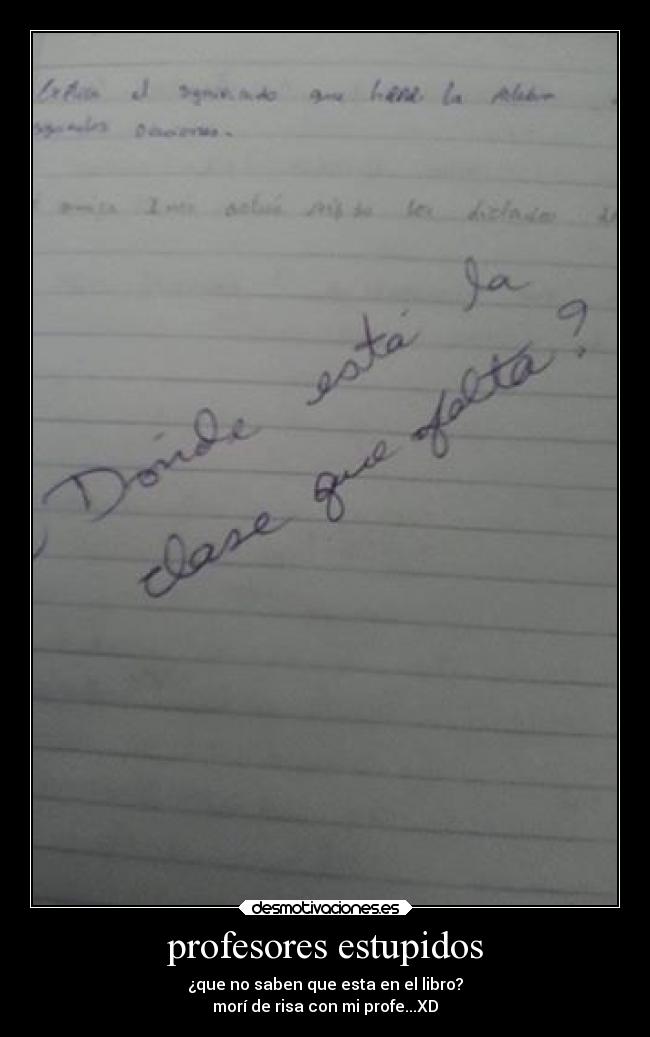 el significado que tiene la palabra
oraciones.
los dictados
¿Dónde está la
clase que falta?
desmotivaciones.es
profesores estupidos
¿que no saben que esta en el libro?
morí de risa con mi profe...XD